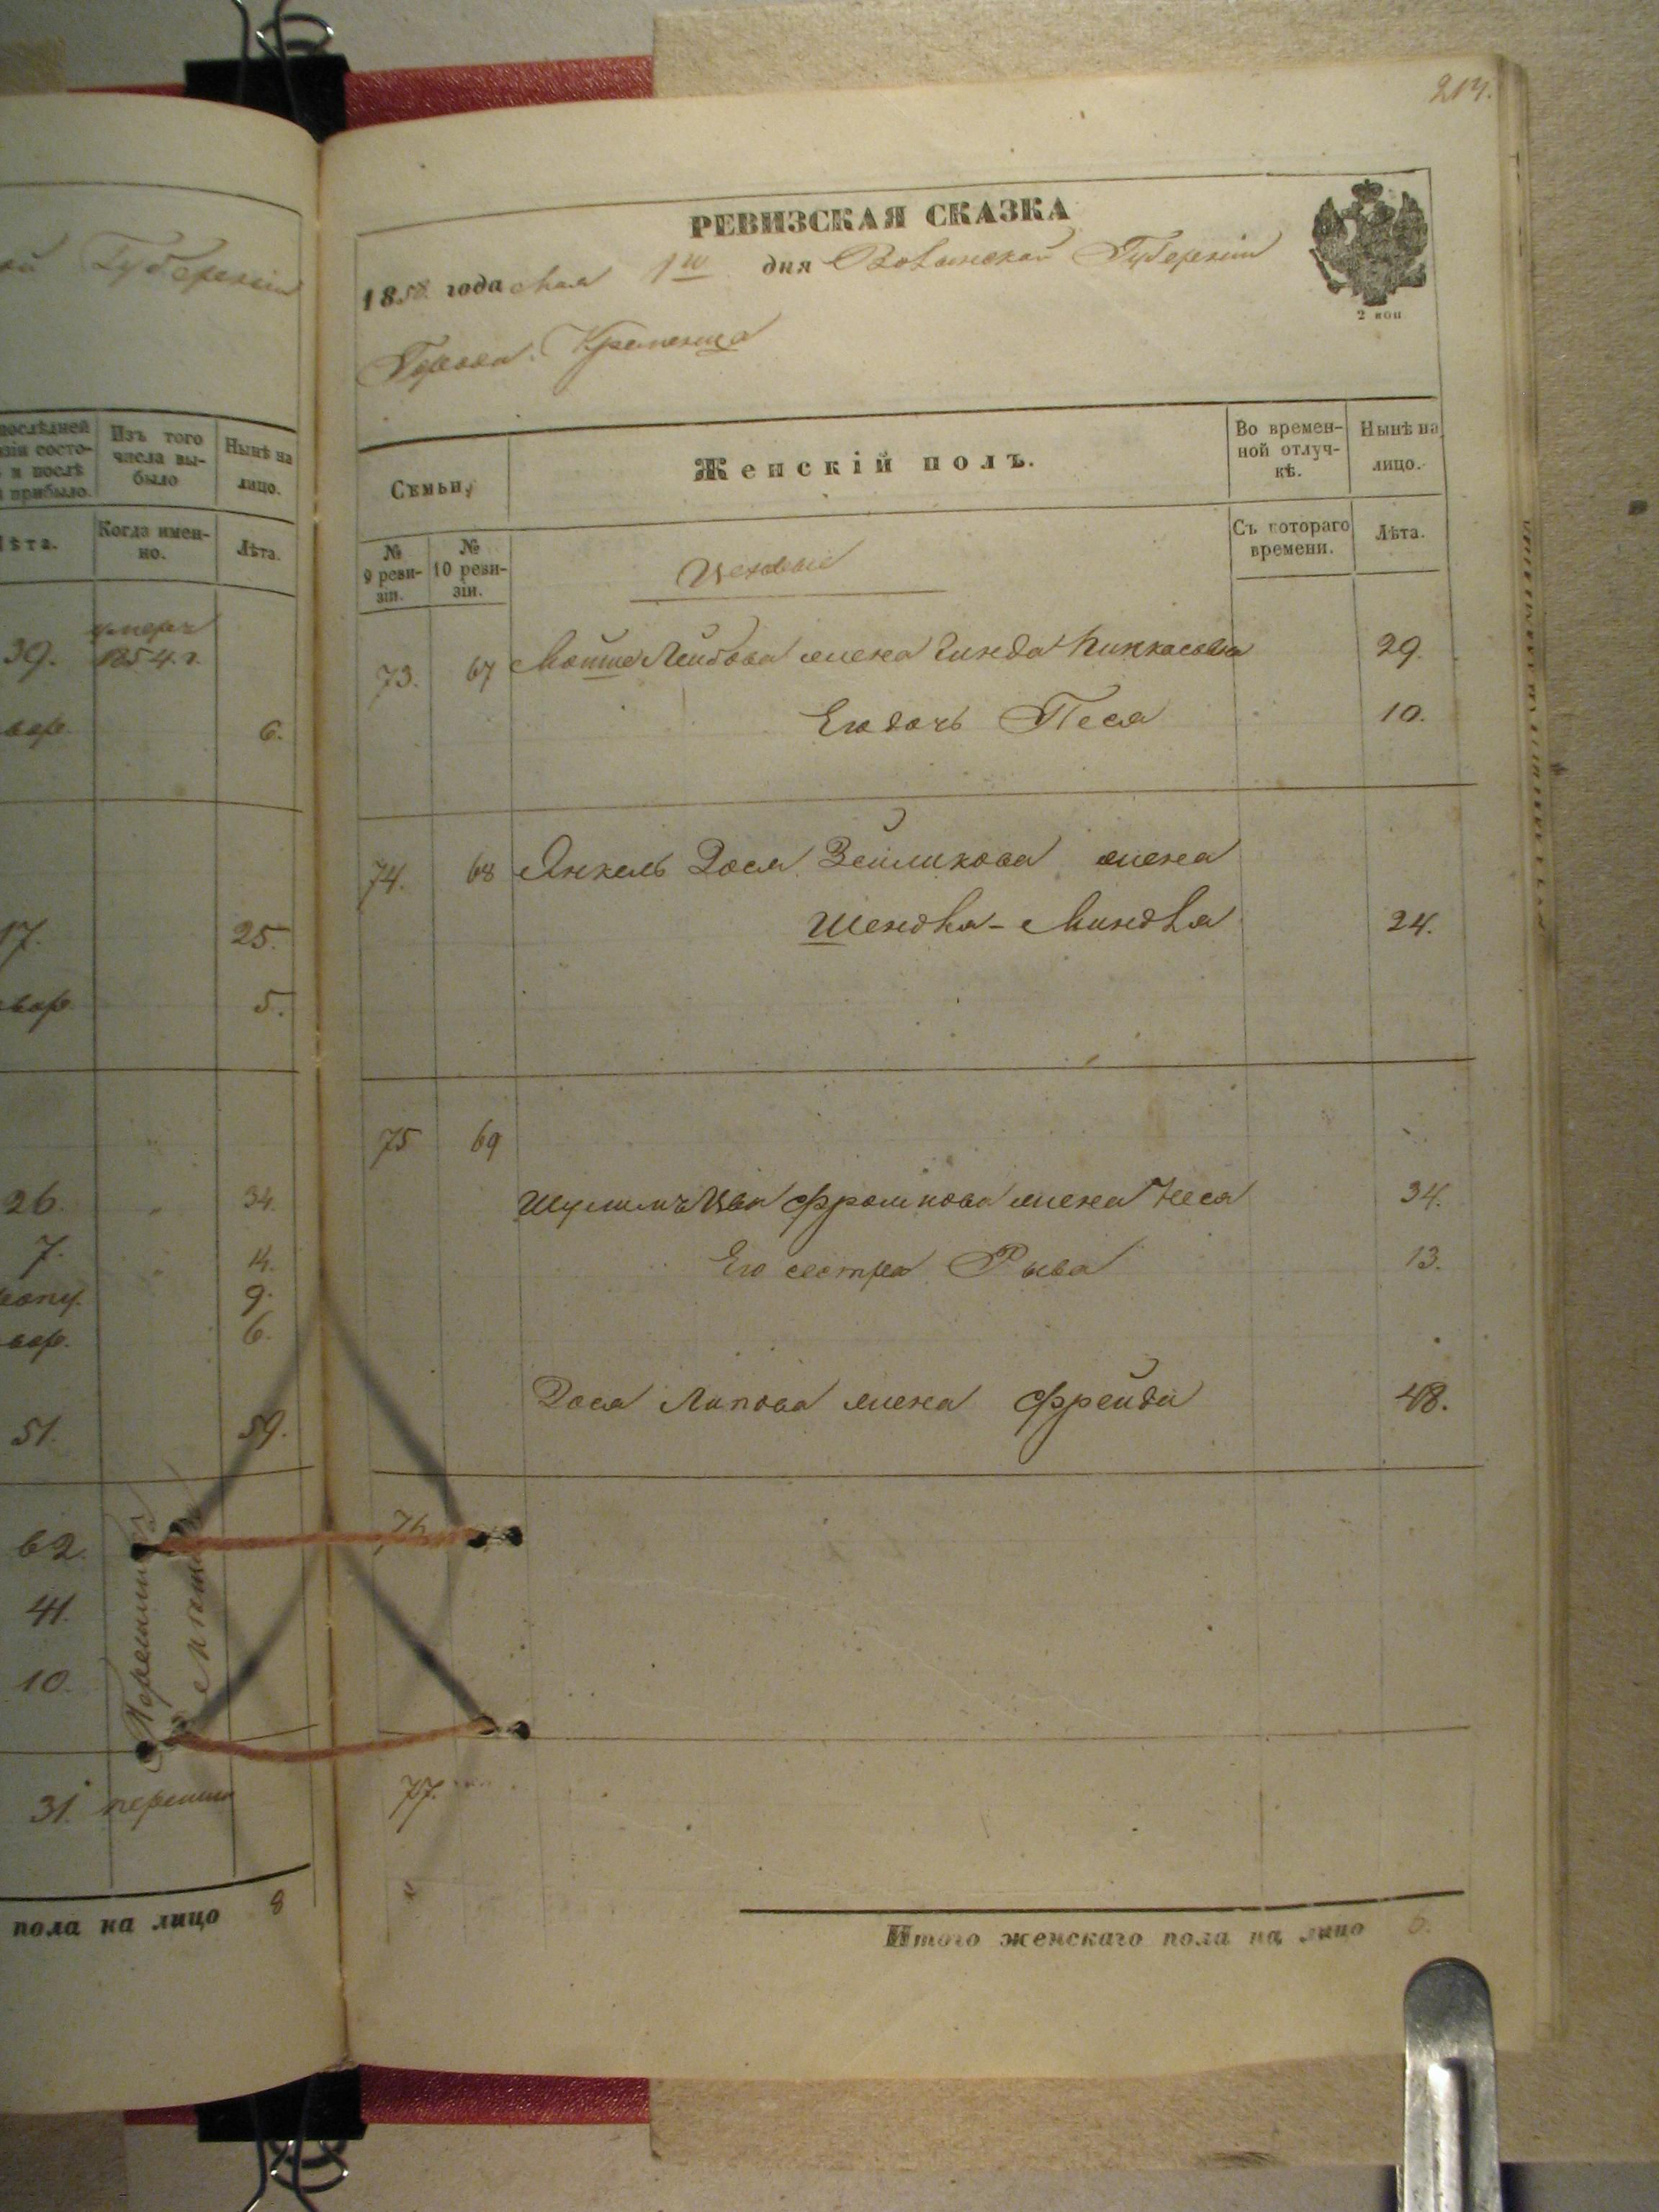 Губерніи
послѣдней
и послѣ
прибыло.
Изъ того
числа вы-
было
Нынѣ на
лицо.
Лѣта.
Когда имен-
но.
Лѣта.
39.
1854. г.
6.
17.
25.
5.
26.
34.
7.
14.
9.
6.
51.
59.
62.
41.
10.
31.
пола на лицо 8
РЕВИЗСКАЯ СКАЗКА
1858. года Мая 1го дня Волынской Губерніи
2 коп
Города Кременца
Семьи,
Женскій полъ.
Во времен-
ной отлуч-
кѣ.
Нынѣ на
лицо.
№
9 реви-
зіи.
№
10 реви-
зіи.
Цеховые
Съ котораго
времени.
Лѣта.
73. 67 Мошка Лейбова жена Гинда Пинкасовна 29.
Его дочь Песя 10.
74. 68 Янкель Дося Зейликова жена
Шендля-Миндля 24.
75 69
Шулимъ Фроимова жена Неся 34.
Его сестра Рыва 13.
Дося Липова жена Фрейда 48.
76.
77.
Итого женскаго пола на лицо 6.